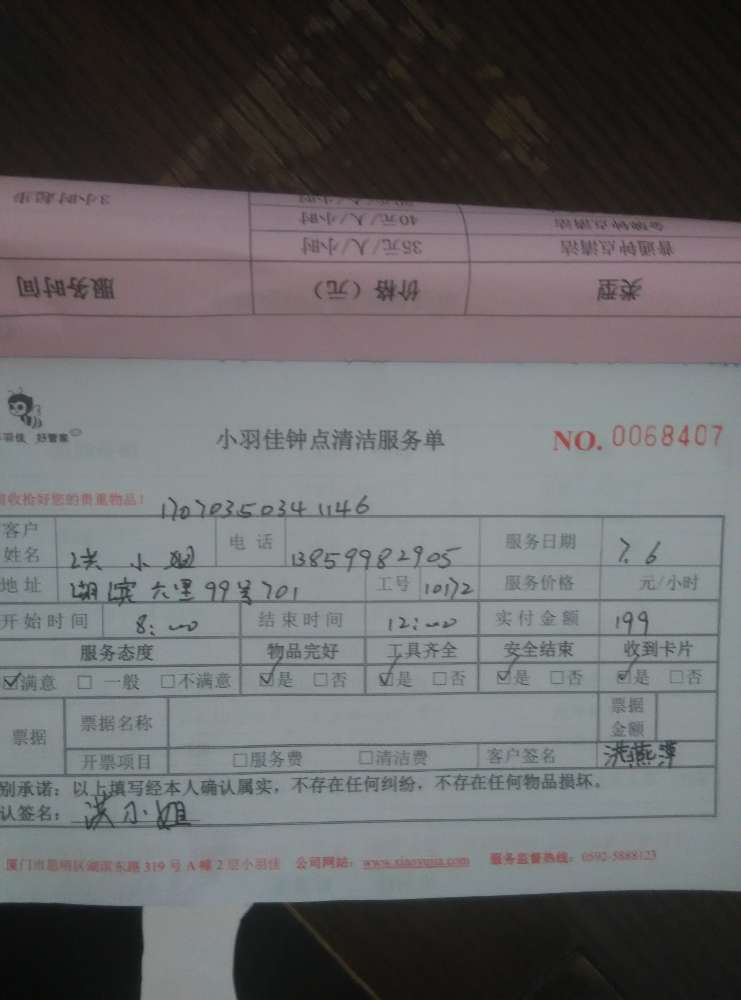 3小时起步
40元/人/小时
金牌钟点清洁
35元/人/小时
普通钟点清洁
服务时间
价格（元）
类型
羽佳 好管家
小羽佳钟点清洁服务单
NO. 0068407
收拾好您的贵重物品！
17070350341146
客户姓名 洪小姐 电话 13859982905 服务日期 7.6
地址 湖滨六里99号701 工号 10172 服务价格 元/小时
开始时间 8:00 结束时间 12:00 实付金额 199
服务态度 物品完好 工具齐全 安全结束 收到卡片
☑满意 □一般 □不满意 ☑是 □否 ☑是 □否 ☑是 □否 ☑是 □否
票据 票据名称 票据金额
开票项目 □服务费 □清洁费 客户签名 洪燕萍
别承诺：以上填写经本人确认属实，不存在任何纠纷，不存在任何物品损坏。
认签名：洪小姐
厦门市思明区湖滨东路319号A幢2层小羽佳 公司网站：www.xiaoyujia.com 服务监督热线：0592-5888123